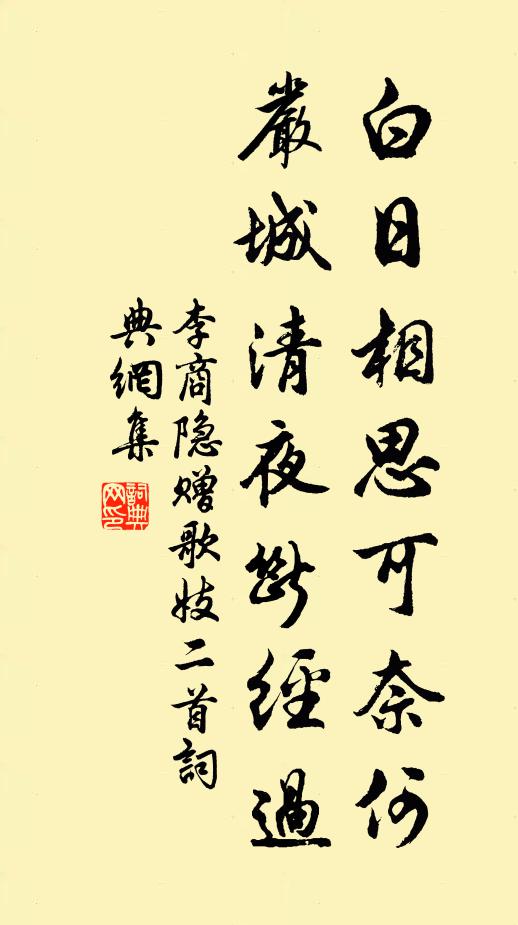 白日相思可奈何
嚴城清夜斷經過
李商隐贈歌妓二首詞
典網集
詞典
网印